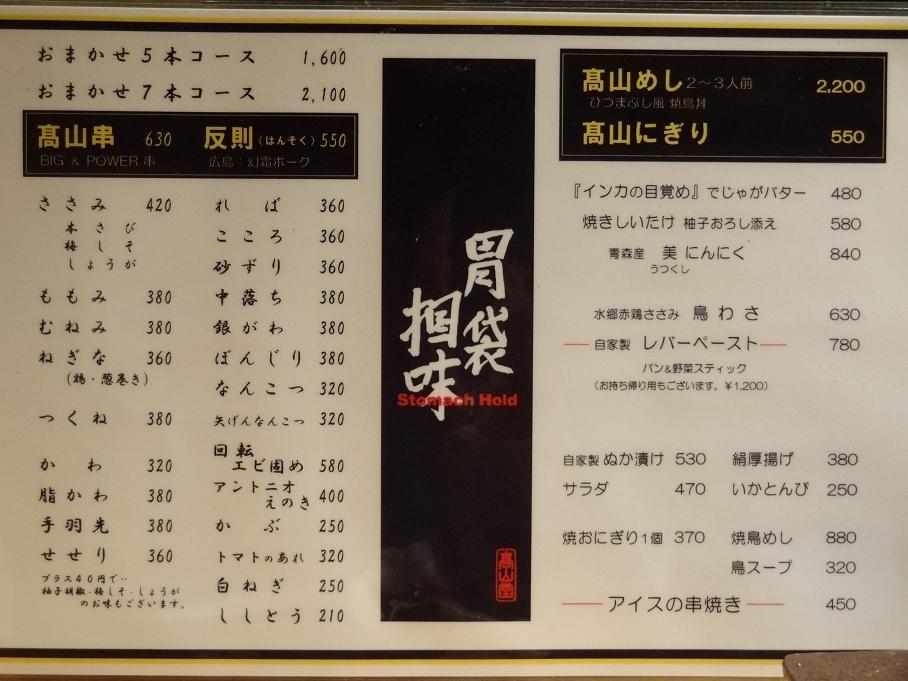 おまかせ5本コース 1,600
おまかせ7本コース 2,100
髙山串 630
BIG & POWER 串
反則(はんそく) 550
広島:幻霜ポーク
ささみ 420
本さび
梅しそ
しょうが
ももみ 380
むねみ 380
ねぎな 360
(鶏・葱巻き)
つくね 380
かわ 320
脂かわ 380
手羽先 380
せせり 360
プラス40円で‥
柚子胡椒・梅しそ・しょうが
のお味もございます。
れば 360
こころ 360
砂ずり 360
中落ち 380
銀がわ 380
ぼんじり 380
なんこつ 320
矢げんなんこつ 320
回転
エビ固め 580
アントニオ
えのき 400
かぶ 250
トマトのあれ 320
白ねぎ 250
ししとう 210
胃袋
相味
Stomach Hold
髙山堂
髙山めし 2〜3人前 2,200
ひつまぶし風 焼鳥丼
髙山にぎり 550
『インカの目覚め』でじゃがバター 480
焼きしいたけ 柚子おろし添え 580
青森産 美にんにく 840
うつくし
水郷赤鶏ささみ 鳥わさ 630
自家製 レバーペースト 780
パン&野菜スティック
(お持ち帰り用もございます。¥1,200)
自家製 ぬか漬け 530 絹厚揚げ 380
サラダ 470 いかとんび 250
焼おにぎり1個 370 焼鳥めし 880
鳥スープ 320
アイスの串焼き 450